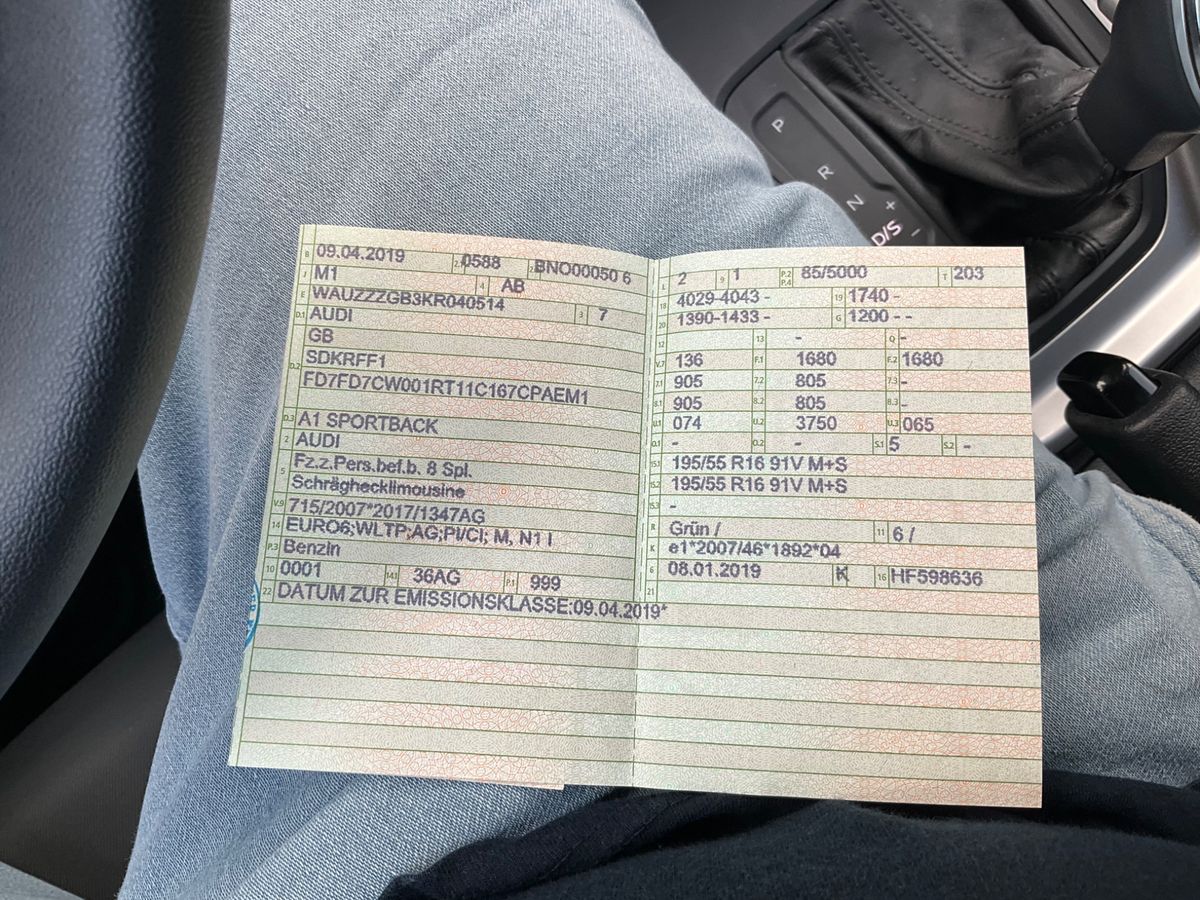 P
R
N
+
D/S
-
B 09.04.2019 2.1 0588 2.2 BNO00050 6
J M1 4 AB
E WAUZZZGB3KR040514 3 7
D.1 AUDI
GB
D.2 SDKRFF1
FD7FD7CW001RT11C167CPAEM1
D.3 A1 SPORTBACK
2 AUDI
5 Fz.z.Pers.bef.b. 8 Spl.
Schräghecklimousine
V.9 715/2007*2017/1347AG
14 EURO6;WLTP;AG;PI/CI; M, N1 I
P.3 Benzin
10 0001 14.1 36AG P.1 999
22 DATUM ZUR EMISSIONSKLASSE:09.04.2019*
L 2 9 1 P.2 P.4 85/5000 T 203
18 4029-4043 - 19 1740 -
20 1390-1433 - G 1200 - -
12 13 - Q -
V.7 136 F.1 1680 F.2 1680
7.1 905 7.2 805 7.3 -
8.1 905 8.2 805 8.3 -
U.1 074 U.2 3750 U.3 065
O.1 - O.2 - S.1 5 S.2 -
15.1 195/55 R16 91V M+S
15.2 195/55 R16 91V M+S
15.3 -
R Grün / 11 6 /
K e1*2007/46*1892*04
6 08.01.2019 17 K 16 HF598636
21